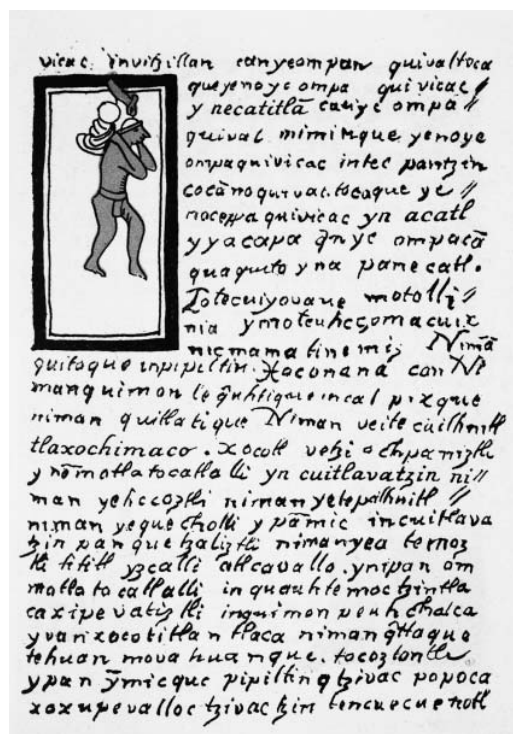 vicac invitzillan canyeompan quivaltoca
queyenoyc ompa quivicac
y necatitlā cauyc ompa
quival miminque yenoye
ompaquivicac intec pantzin
cocānoquivac tocaque ye
noceppa quivicac yn acatl
yyacapa q̄nyc ompacā
quaquito yna panecatl.
Totecuiyovane motolli
nia ymoteuhcçomacuix
nicmamatinemiz Nimā
quitoque inpipiltin. Xoconana can Ni
manquimon quhtique incal pixque
niman quitlatique Niman veite cuilhuitl
tlaxochimaco . xocotl vetzi ochpaniztli
y nōmotlatocatlalli yn cuitlavatzin ni
man yehccoztli niman yetepilhuitl
niman yequecholli y pāmic incuitlava
tzin panquetzaliztli nimanyea temoz
tli tititl yzcalli atlcavallo . ynipan om
motlatocatlalli inquauhtemoctzintla
caxipevaliztli inquimon peuh chalca
yvan xocotitlan tlaca niman q̄ttaque
tehuan mova huanque. tocoztontli
ypan ȳmicque pipiltin q tzivac popoca
xoxupevalloc tzivactzin tencuecuenotl